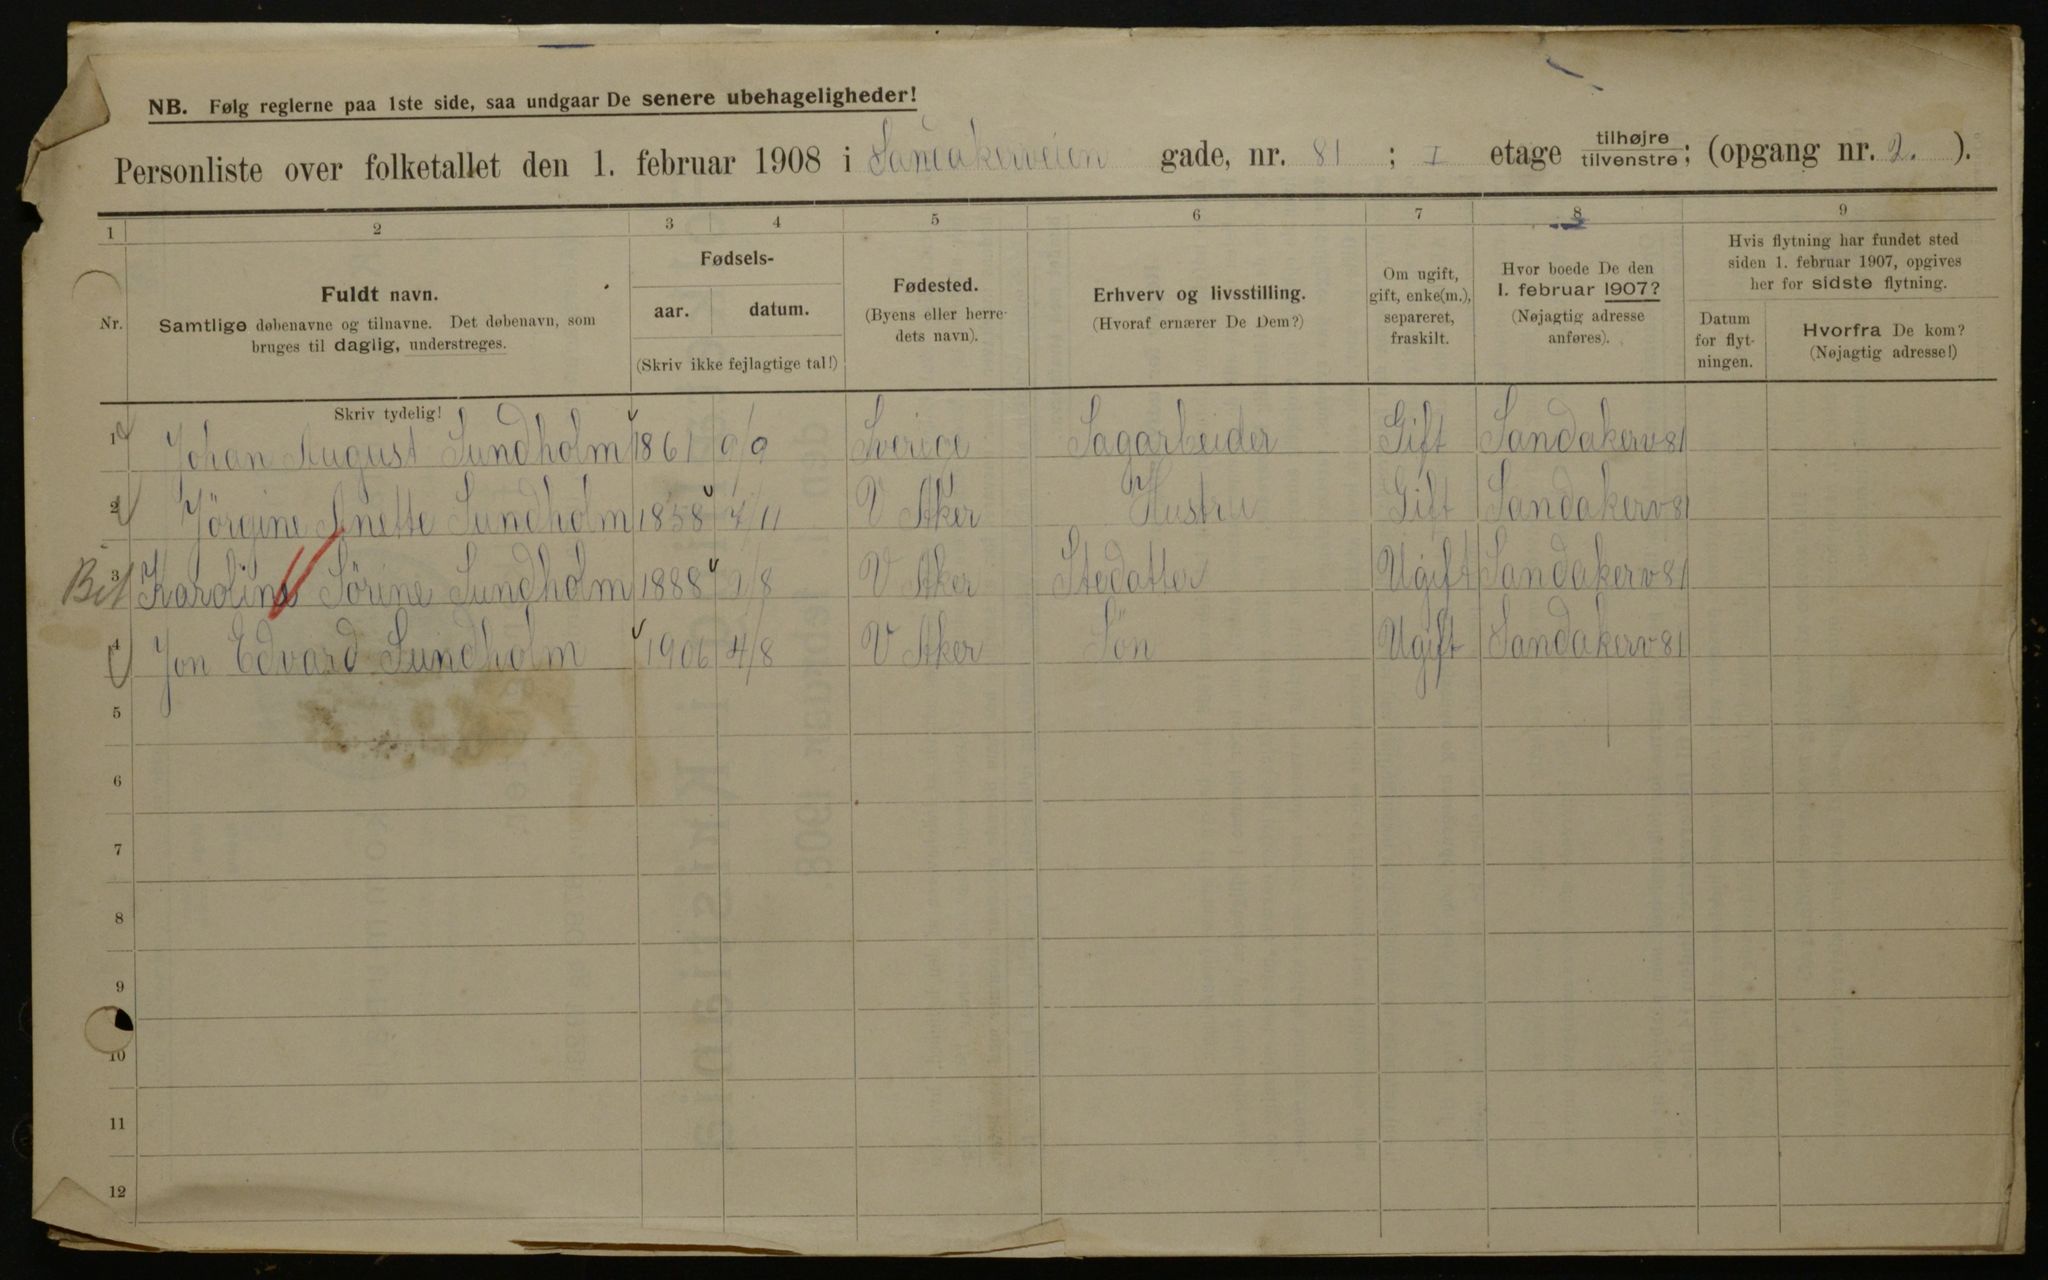 NB. Følg reglerne paa 1ste side, saa undgaar De senere ubehageligheder!
Personliste over folketallet den 1. februar 1908 i Sandakerveien gade, nr. 81 ; I etage tilhøjre/tilvenstre; (opgang nr. 2. ).
1 2 3 4 5 6 7 8 9
Nr.
Fuldt navn.
Samtlige døbenavne og tilnavne. Det døbenavn, som
bruges til daglig, understreges.
Fødsels-
aar. datum.
(Skriv ikke fejlagtige tal!)
Fødested.
(Byens eller herre-
dets navn).
Erhverv og livsstilling.
(Hvoraf ernærer De Dem?)
Om ugift,
gift, enke(m.),
separeret,
fraskilt.
Hvor boede De den
1. februar 1907?
(Nøjagtig adresse
anføres).
Hvis flytning har fundet sted
siden 1. februar 1907, opgives
her for sidste flytning.
Datum
for flyt-
ningen.
Hvorfra De kom?
(Nøjagtig adresse!)
Skriv tydelig!
1 Johan August Sundholm 1861 9/9 Sverige Sagarbeider Gift Sandakerv 81
2 Jörgine Anette Sundholm 1858 4/11 V Aker Hustru Gift Sandakerv 81
3 Karoline Sörine Sundholm 1888 2/8 V Aker Stedatter Ugift Sandakerv 81
4 Jon Edvard Sundholm 1906 4/8 V Aker Sön Ugift Sandakerv 81
5
6
7
8
9
10
11
12